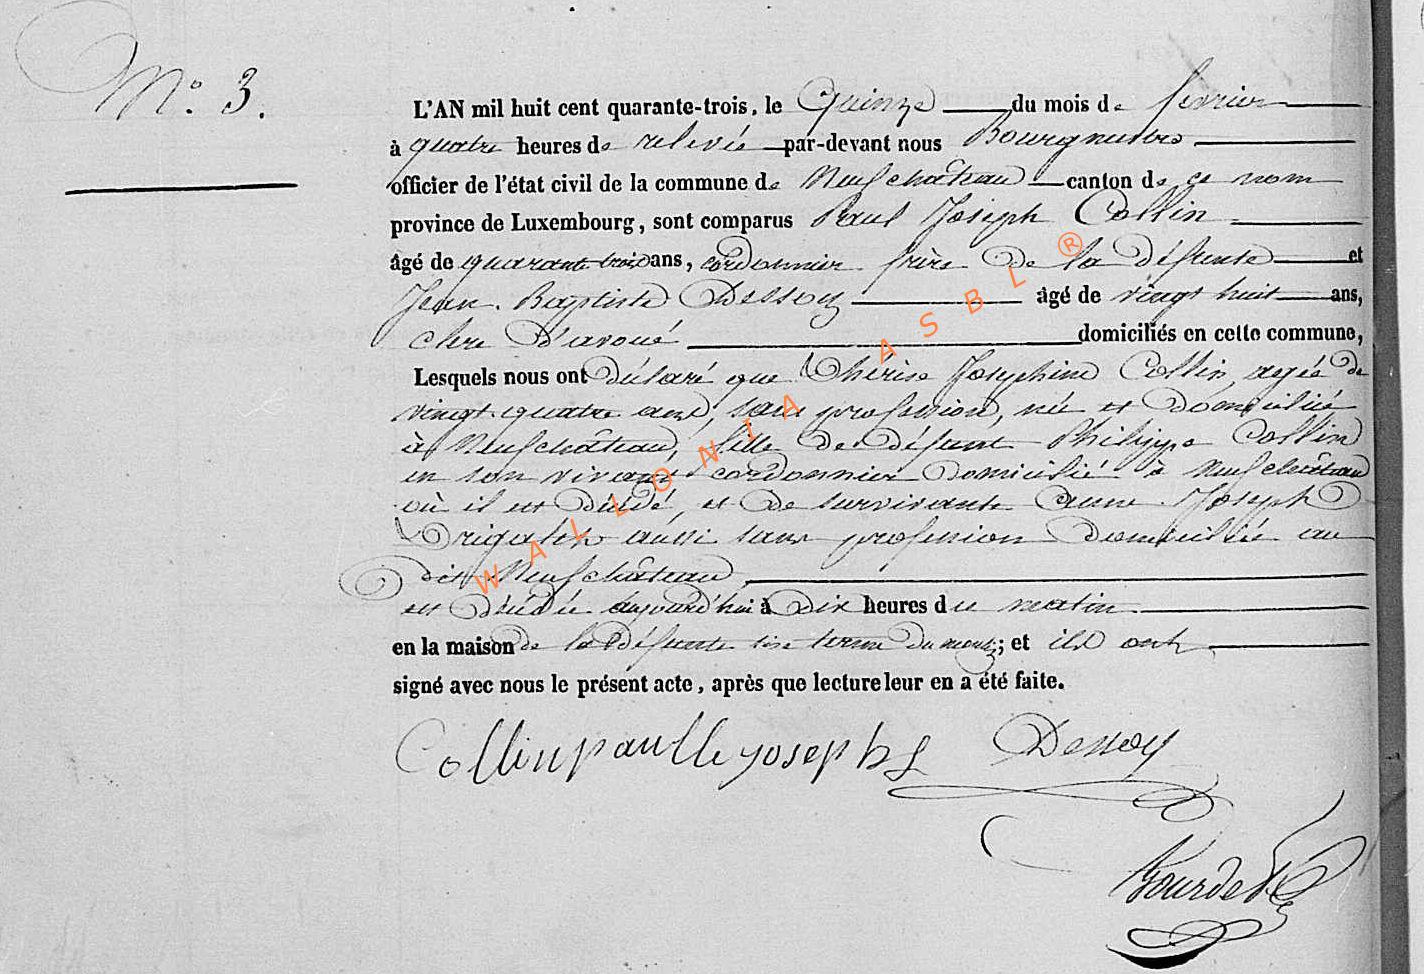 N.° 3.
L'AN mil huit cent quarante-trois, le Quinze du mois de fevrier
à quatre heures de relevée par-devant nous Bourgmestre
officier de l'état civil de la commune de Neufchâteau canton de ce nom
province de Luxembourg, sont comparus Paul Joseph Collin
âgé de quarante trois ans, cordonnier frère de la défunte et
Jean Baptiste Dessoy âgé de vingt huit ans,
clerc d'avoué domiciliés en cette commune,
Lesquels nous ont déclaré que Thérèse Joséphine Collin, agée de
vingt quatre ans, sans profession, née et domiciliée
à Neufchâteau, fille de défunt Philippe Collin
en son vivant cordonnier domicilié à Neufchâteau
où il est décédé, et de survivante Anne Joseph
aussi sans profession domiciliée au
dit Neufchâteau
est décédée aujourd'hui à Dix heures du matin
en la maison de la défunte ; et ils ont
signé avec nous le présent acte, après que lecture leur en a été faite.
Collin paulle joseph
Dessoy
WALLONIA ASBL ®